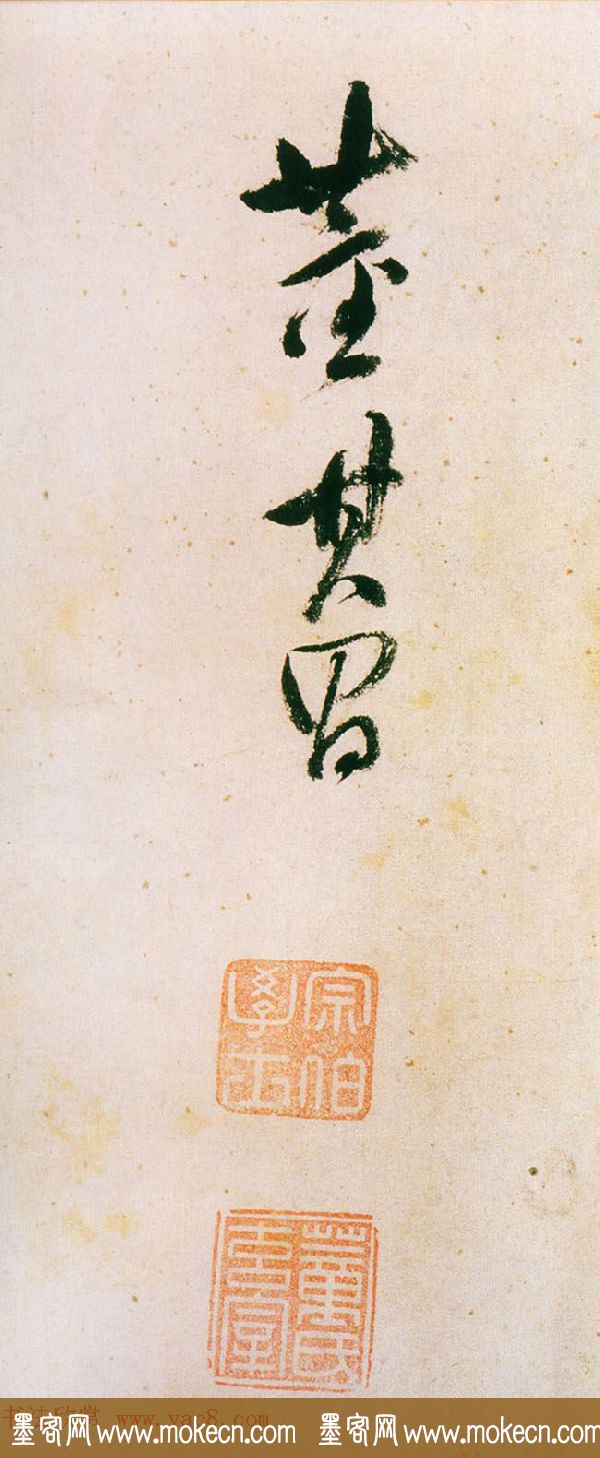 董其昌
宗伯
學士
董氏
玄宰
书法欣赏 www.yac8.com
墨客网www.mokecn.com 墨客网www.mokecn.com